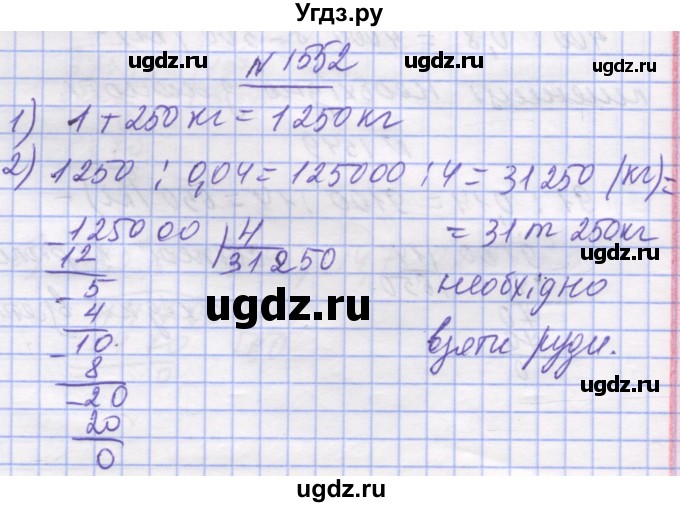 Угдз.ру
N 1552
1) 1 + 250 кг = 1250 кг
2) 1250 : 0,04 = 125000 : 4 = 31 250 (кг) =
= 31 т 250 кг
необхідно
взяти руди.
- 125000 | 4
12 31250
- 5
4
- 10
8
- 20
20
0
ugdz.ru
ugdz.ru
ugdz.ru
ugdz.ru
ugdz.ru
ugdz.ru
ugdz.ru
ugdz.ru